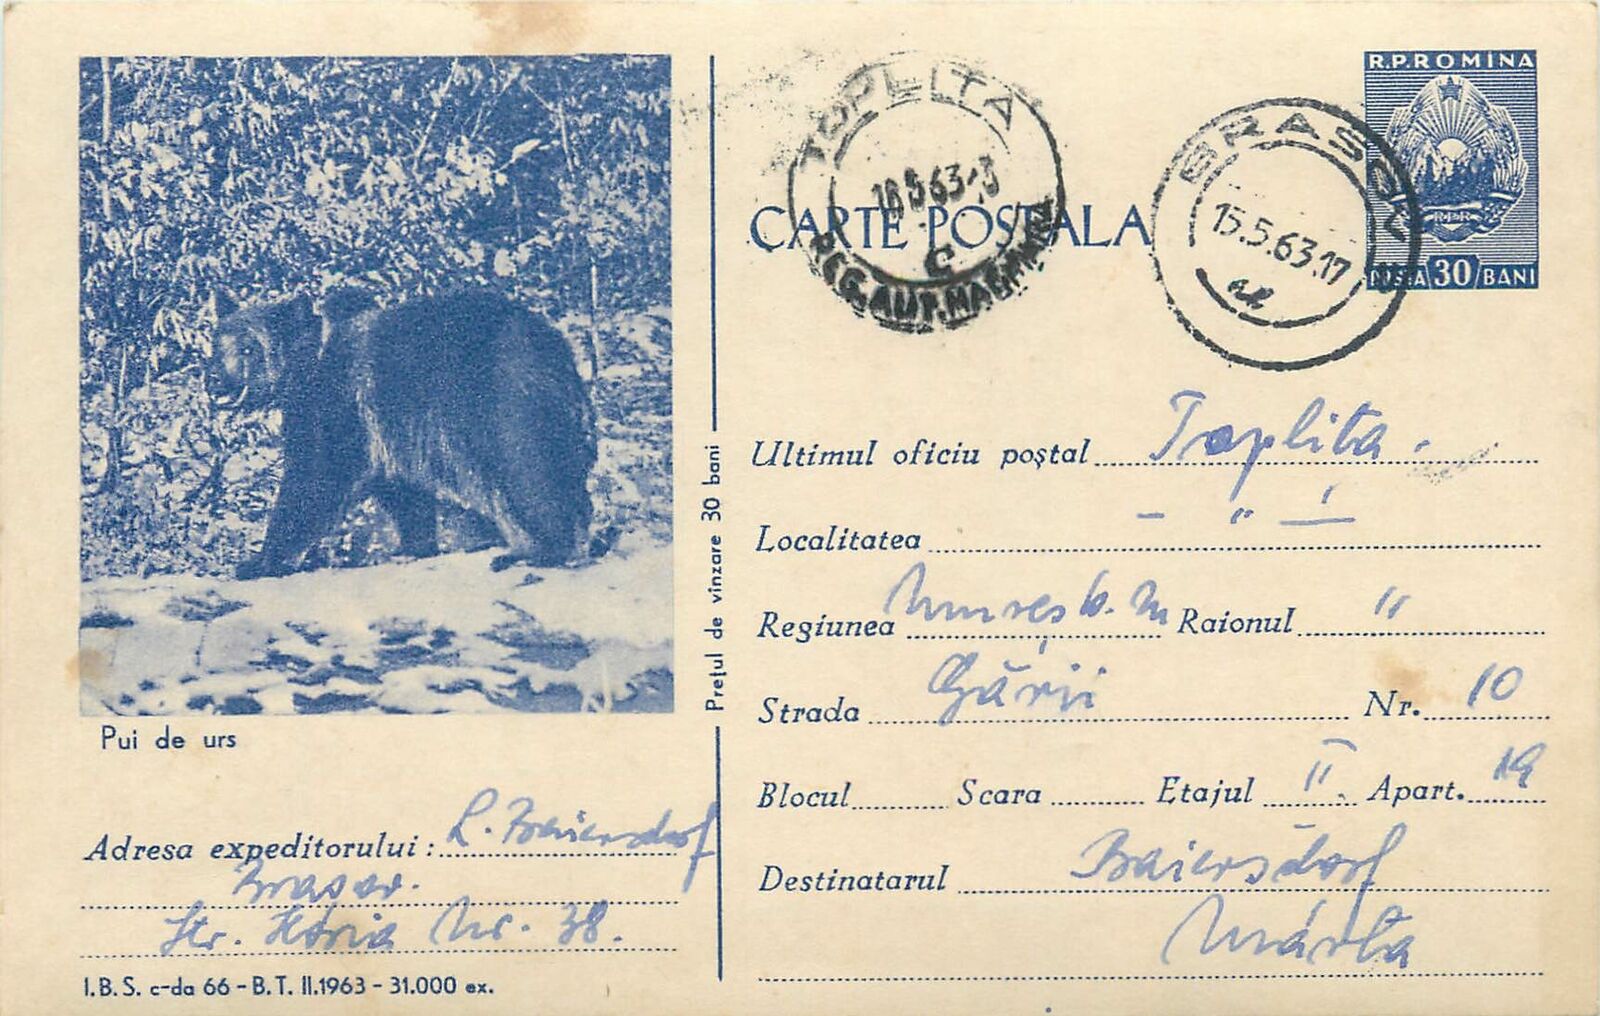 R.P.ROMINA
RPR
POSTA 30 BANI
TOPLITA
18 5 63-
C
REG. AUT. MAGHIARA
BRASOV
15.5.63.17
CARTE POSTALA
Pui de urs
Prețul de vînzare 30 bani
Ultimul oficiu poștal Toplita.
Localitatea — " —
Regiunea Mureș Raionul "
Strada Gării Nr. 10
Blocul Scara Etajul II. Apart. 19
Destinatarul Baiersdorf
Márta
Adresa expeditorului: L. Baiersdorf
Brasov.
Str. Horia Nr. 38.
I.B.S. c-da 66 - B.T. II.1963 - 31.000 ex.